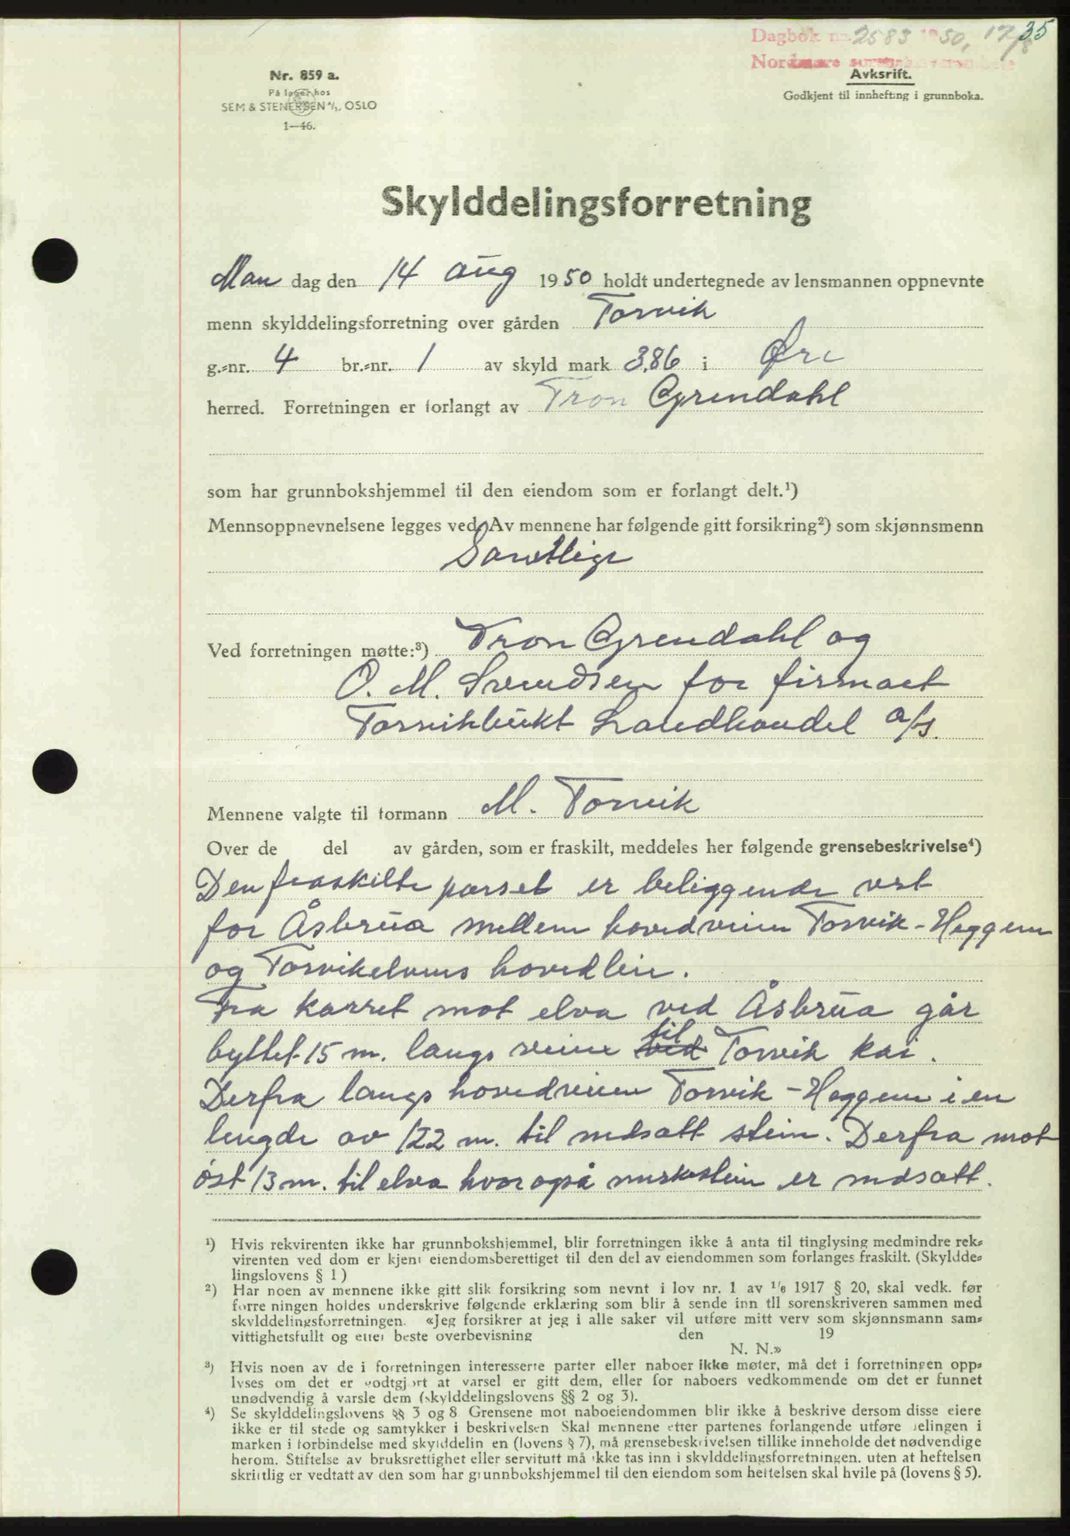 35
Dagbok nr. 2583 1950, 17/8
Nordmøre sorenskriverembete
Nr. 859 a.
På lager hos
SEM & STENERSEN A/S, OSLO
1—46.
Avksrift.
Godkjent til innhefting i grunnboka.
Skylddelingsforretning
Man dag den 14 aug 1950 holdt undertegnede av lensmannen oppnevnte
menn skylddelingsforretning over gården Torvik
g.-nr. 4 br.-nr. 1 av skyld mark 3,86 i Øre
herred. Forretningen er forlangt av Tron Grendahl
som har grunnbokshjemmel til den eiendom som er forlangt delt.¹)
Mennsoppnevnelsene legges ved. Av mennene har følgende gitt forsikring²) som skjønnsmenn
Samtlige
Ved forretningen møtte:³) Tron Grendahl og
O. M. Svendsen for firmaet
Torvikbukt Landhandel a/s.
Mennene valgte til formann M. Torvik
Over de del av gården, som er fraskilt, meddeles her følgende grensebeskrivelse⁴)
Den fraskilte parsel er beliggende vest
for Åsbrua mellem hovedveien Torvik - Heggem
og Torvikelvens hovedleie.
Fra karret mot elva ved Åsbrua går
byttet 15 m. langs veien ved til Torvik kai.
Derfra langs hovedveien Torvik - Heggem i en
lengde av 122 m. til nedsatt stein. Derfra mot
øst 13 m. til elva hvor også merkestein er nedsatt.
¹) Hvis rekvirenten ikke har grunnbokshjemmel, blir forretningen ikke å anta til tinglysing medmindre rek-
virenten ved dom er kjent eiendomsberettiget til den del av eiendommen som forlanges fraskilt. (Skyldde-
lingslovens § 1)
²) Har noen av mennene ikke gitt slik forsikring som nevnt i lov nr. 1 av 1/6 1917 § 20, skal vedk. før
forretningen holdes underskrive følgende erklæring som blir å sende inn til sorenskriveren sammen med
skylddelingsforretningen. «Jeg forsikrer at jeg i alle saker vil utføre mitt verv som skjønnsmann sam-
vittighetsfullt og etter beste overbevisning den 19
N. N.»
³) Hvis noen av de i forretningen interesserte parter eller naboer ikke møter, må det i forretningen opp-
lyses om det er godtgjort at varsel er gitt dem, eller for naboers vedkommende om det er funnet
unødvendig å varsle dem (skylddelingslovens §§ 2 og 3).
⁴) Se skylddelingslovens §§ 3 og 8 Grensene mot naboeiendommen blir ikke å beskrive dersom disse eiere
ikke er til stede og samtykker i beskrivelsen Skal mennene etter partenes forlangende utføre delingen i
marken i forbindelse med skylddelingen (lovens § 7), må grensebeskrivelsen tillike inneholde det nødvendige
herom. Stiftelse av bruksrettighet eller servitutt må ikke tas inn i skylddelingsforretningen. uten at heftelsen
skriftlig er vedtatt av den som har grunnbokshjemmel til den eiendom som heftelsen skal hvile på (lovens § 5).